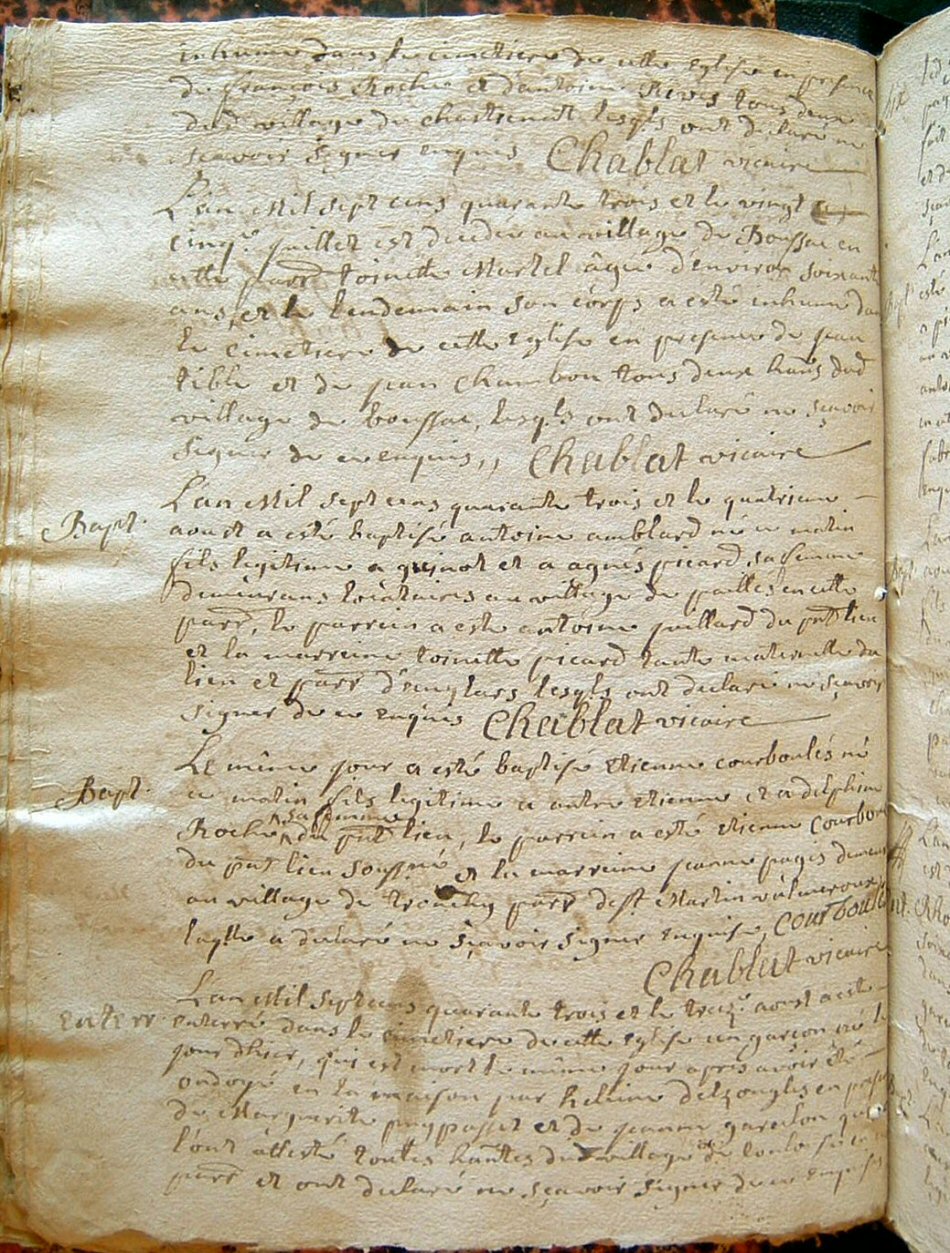 inhumé dans le cimetiere de cette Eglise en presence
de françois Roche et d'antoine tous deux
dud village de lesqls ont declaré ne
sçavoir signer enquis Chablat vicaire
L'an Mil sept cens quarante trois et le vingt
cinqe juillet est decedée au village de Boussac en
cette parr toinette Martel âgée d'environ soixante
ans, et le lendemain son corps a esté inhumé dans
le cimetiere de cette Eglise en presence de jean
tible et de jean Chambon tous deux hans dud
village de boussac, lesqls ont declaré ne sçavoir
signer de ce enquis,, Chablat vicaire
L'an Mil sept cens quarante trois et le quatrieme
Bapt. aoust a esté baptisé antoine amblard né ce matin
fils legitime a guinot et a agnés picard sa femme
demeurans locataires au village de pailles en cette
parr, le parrein a esté antoine juillard du pnt lieu
et la marreine toinette picard tante maternelle du
lieu et parr d'anglars lesqls ont declaré ne sçavoir
signer de ce enquis Chablat vicaire
Le même jour a esté baptisé Etienne courboulés né
Bapt. ce matin fils legitime a autre Etienne et a delphine
Roche sa femme du pnt lieu, le parrein a esté Etienne courboul
du pnt lieu soussigné et la marreine jeanne pagis demeur
au village de parr de St Martin valmeroux
laqlle a declaré ne sçavoir signer enquise, courboulés
Chablat vicaire
L'an Mil sept cens quarante trois et le treize aoust a esté
Enterr. enterré dans le cimetiere de cette Eglise un garçon né le
jour d'hier, qui est mort le même jour apres avoir été
ondoyé en la maison par helaine delzongles en presence
de Marguerite puypasset et de jeanne qui
l'ont attesté toutes hantes du village de en
parr et ont declaré ne sçavoir signer de ce enquises